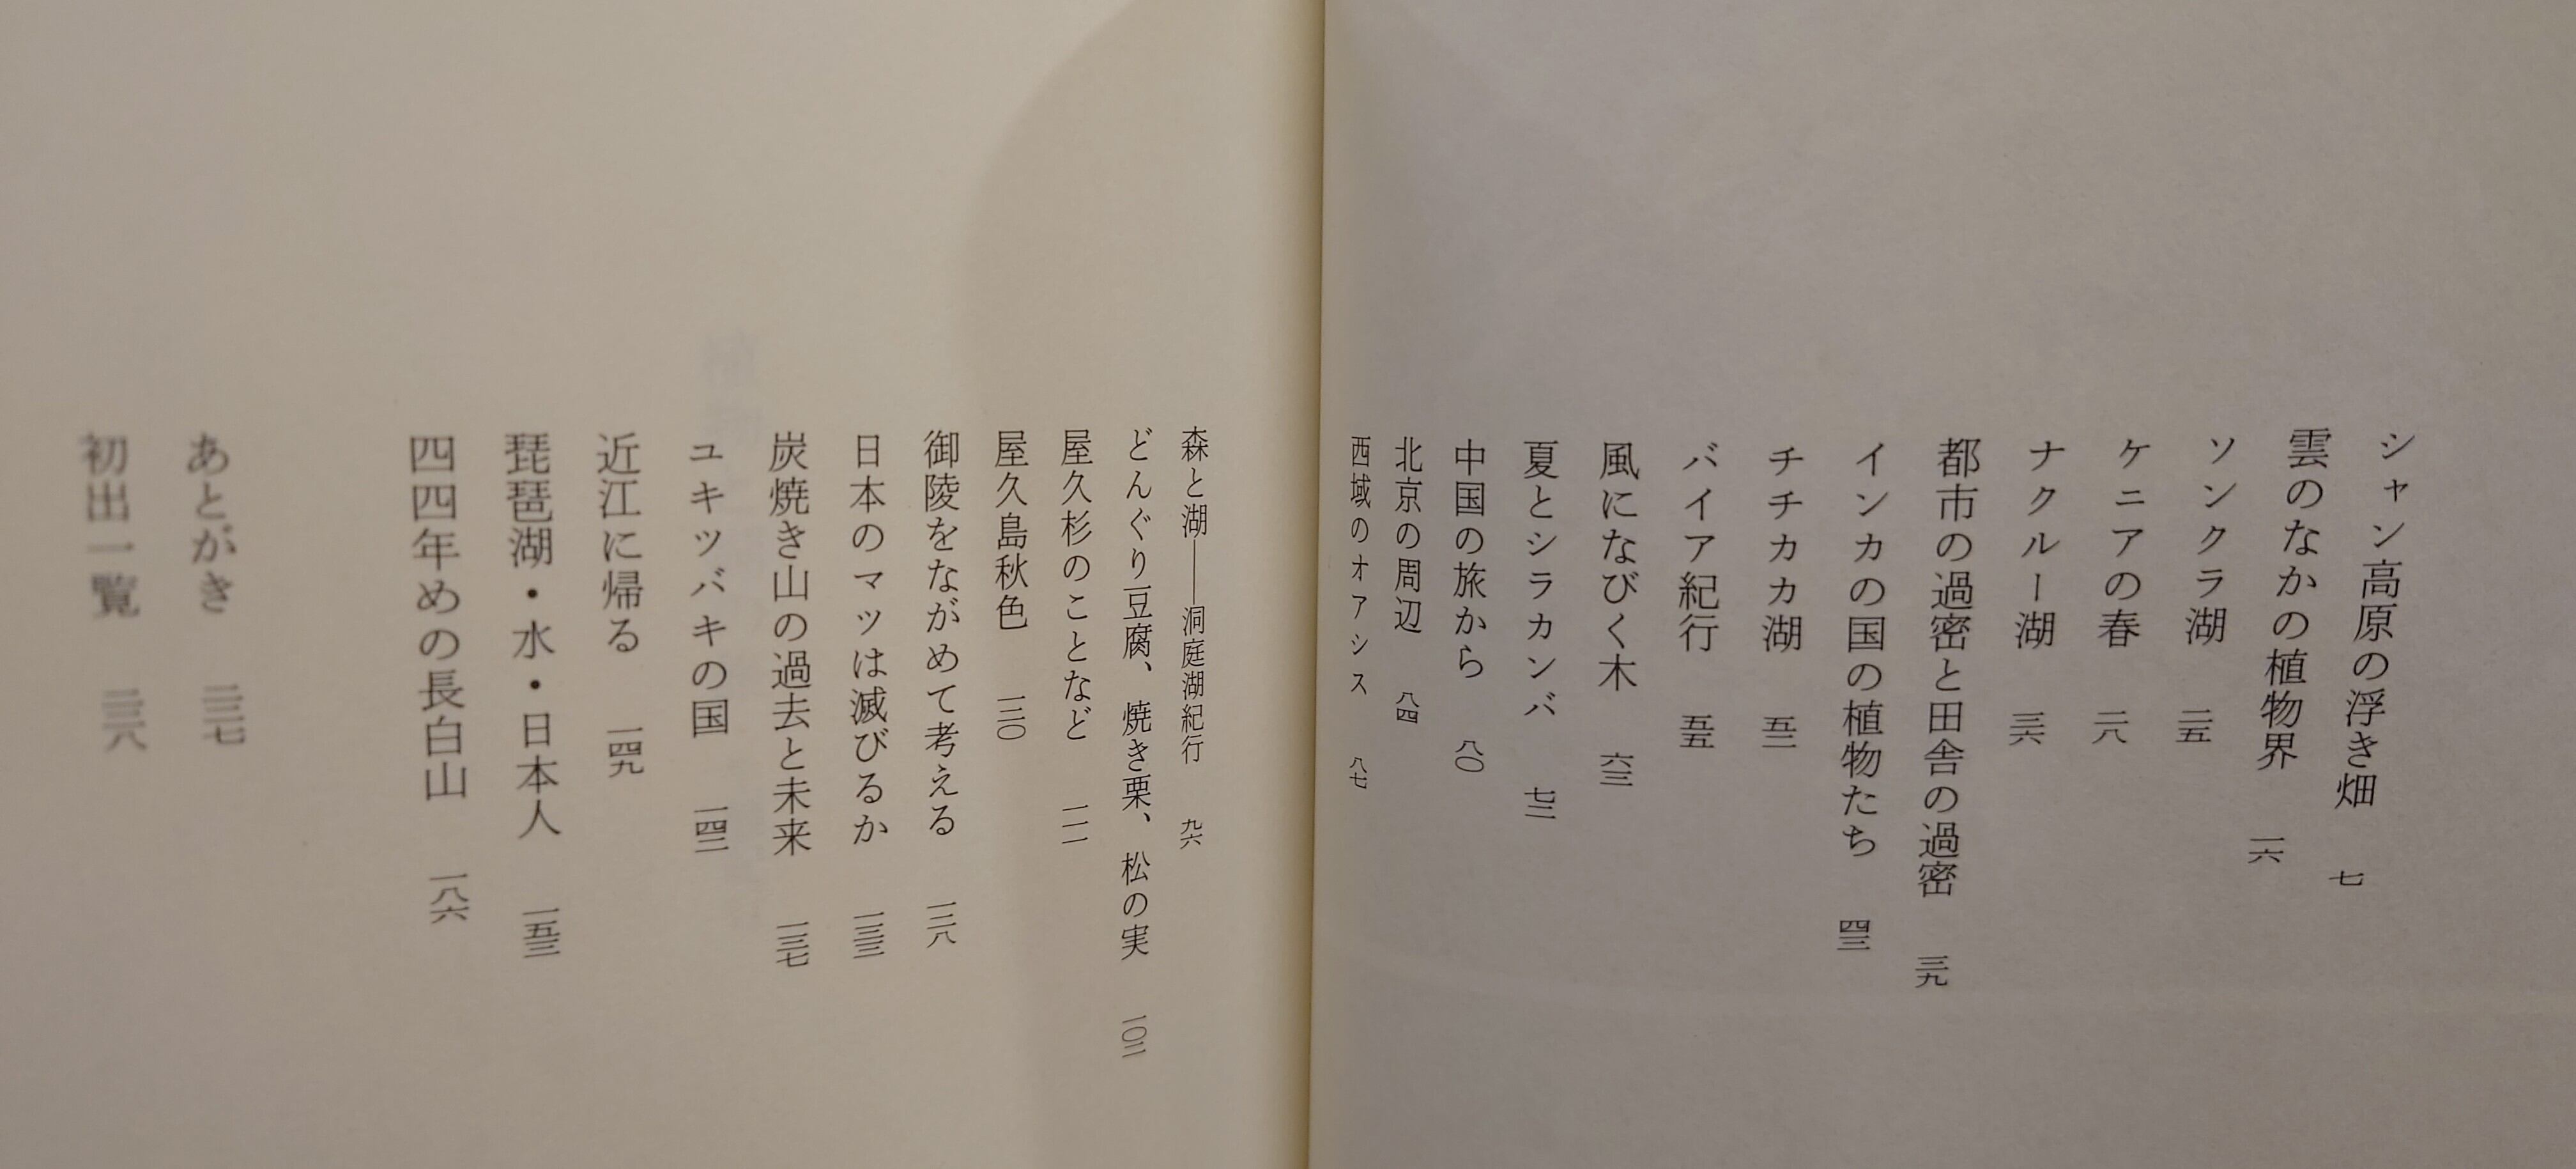 シャン高原の浮き畑　七
雲のなかの植物界　一六
ソンクラ湖　二五
ケニアの春　二八
ナクルー湖　三六
都市の過密と田舎の過密　三九
インカの国の植物たち　四三
チチカカ湖　五二
バイア紀行　五五
風になびく木　六三
夏とシラカンバ　七三
中国の旅から　八〇
北京の周辺　八四
西域のオアシス　八七
森と湖――洞庭湖紀行　九六
どんぐり豆腐、焼き栗、松の実　一〇二
屋久杉のことなど　一一一
屋久島秋色　一二〇
御陵をながめて考える　一二八
日本のマツは滅びるか　一三三
炭焼き山の過去と未来　一三七
ユキツバキの国　一四二
近江に帰る　一四九
琵琶湖・水・日本人　一五三
四四年めの長白山　一八六
あとがき
初出一覧